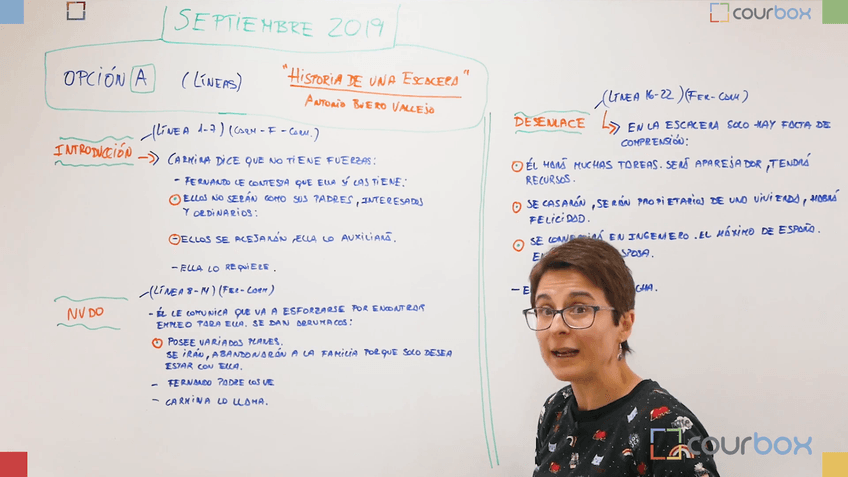 courbox
SEPTIEMBRE 2019
OPCIÓN A (LÍNEAS) "HISTORIA DE UNA ESCALERA"
ANTONIO BUERO VALLEJO
(LÍNEA 1-7) (CARM-F-CARM.)
INTRODUCCIÓN
CARMINA DICE QUE NO TIENE FUERZAS:
- FERNANDO LE CONTESTA QUE ELLA SÍ LAS TIENE:
ELLOS NO SERÁN COMO SUS PADRES, INTERESADOS
Y ORDINARIOS:
ELLOS SE ALEJARÁN, ELLA LO AUXILIARÁ.
- ELLA LO REQUIERE.
(LÍNEA 8-14) (FER-CARM)
NUDO
- ÉL LE COMUNICA QUE VA A ESFORZARSE POR ENCONTRAR
EMPLEO PARA ELLA. SE DAN ARRUMACOS:
POSEE VARIADOS PLANES.
SE IRÁN, ABANDONARÁN A LA FAMILIA PORQUE SOLO DESEA
ESTAR CON ELLA.
- FERNANDO PADRE LOS VE
- CARMINA LO LLAMA.
(LÍNEA 16-22) (FER-CARM)
DESENLACE
EN LA ESCALERA SOLO HAY FALTA DE
COMPRENSIÓN:
ÉL HARÁ MUCHAS TAREAS. SERÁ APAREJADOR, TENDRÁ
RECURSOS.
SE CASARÁN, SERÁN PROPIETARIOS DE UNA VIVIENDA, HABRÁ
FELICIDAD.
SE CONVERTIRÁ EN INGENIERO. EL MÁXIMO DE ESPAÑA.
courbox